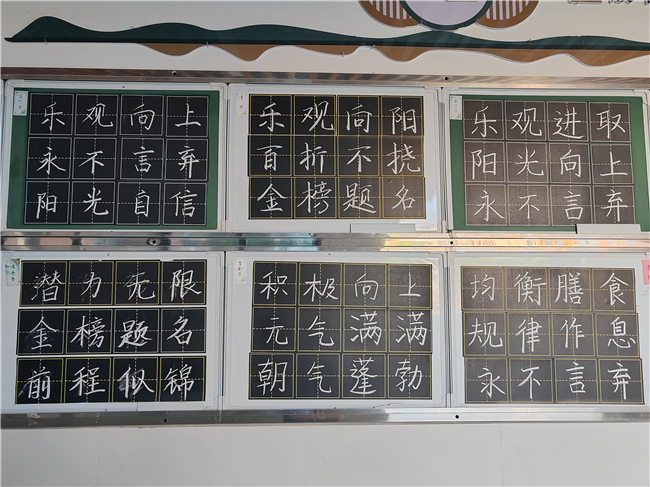 乐观向上
永不言弃
阳光自信
乐观向阳
百折不挠
金榜题名
乐观进取
阳光向上
永不言弃
潜力无限
金榜题名
前程似锦
积极向上
元气满满
朝气蓬勃
均衡膳食
规律作息
永不言弃